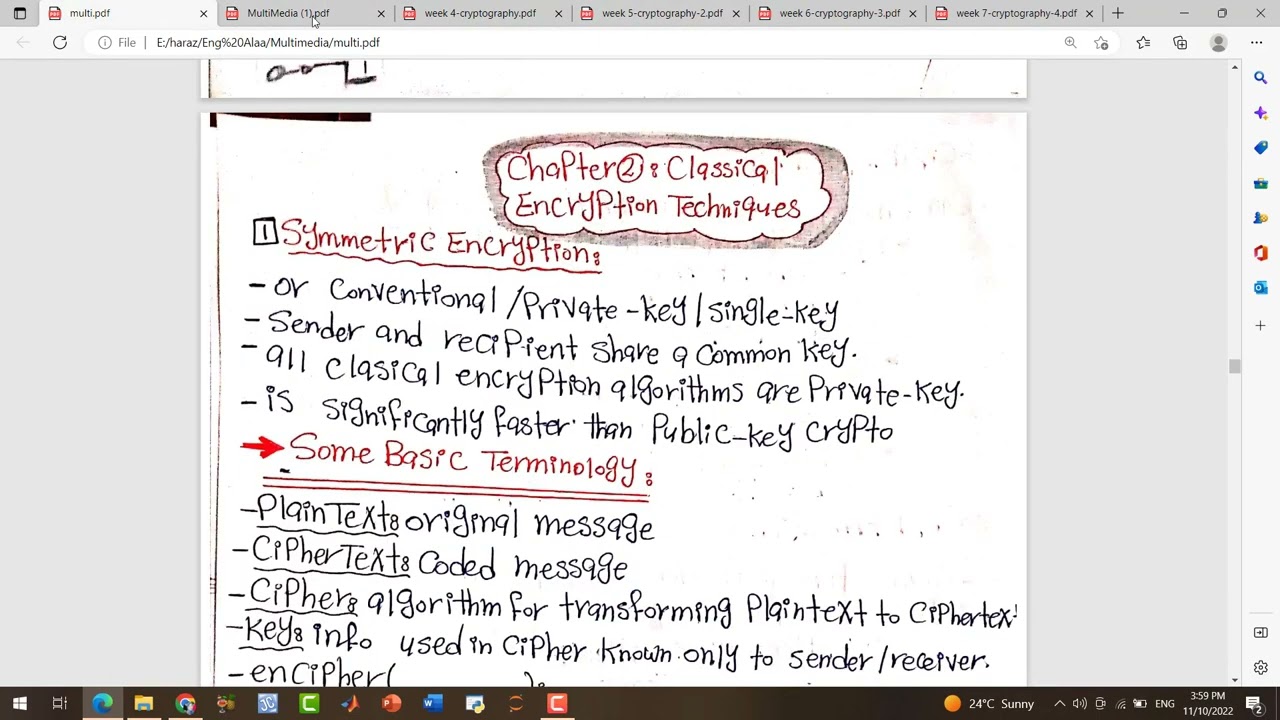 multi.pdf
MultiMedia (1).pdf
week 4-cryptography.pdf
week 5-cryptography-2.pdf
week 6-cryptography-3.pdf
week 7-cryptography-4.pdf
File
E:/haraz/Eng%20Alaa/Multimedia/multi.pdf
Chapter ②: Classical
Encryption Techniques
1 Symmetric Encryption:
- or conventional / Private-key / single-key
- Sender and recipient share a common key.
- all clasical encryption algorithms are Private-key.
- is significantly faster than Public-key crypto
→ Some Basic Terminology:
- PlainText: original message
- CipherText: Coded message
- Cipher: algorithm for transforming Plaintext to Ciphertex
- Key: info used in Cipher known only to sender/receiver.
- enCipher( ):
24°C Sunny
ENG
3:59 PM
11/10/2022
2